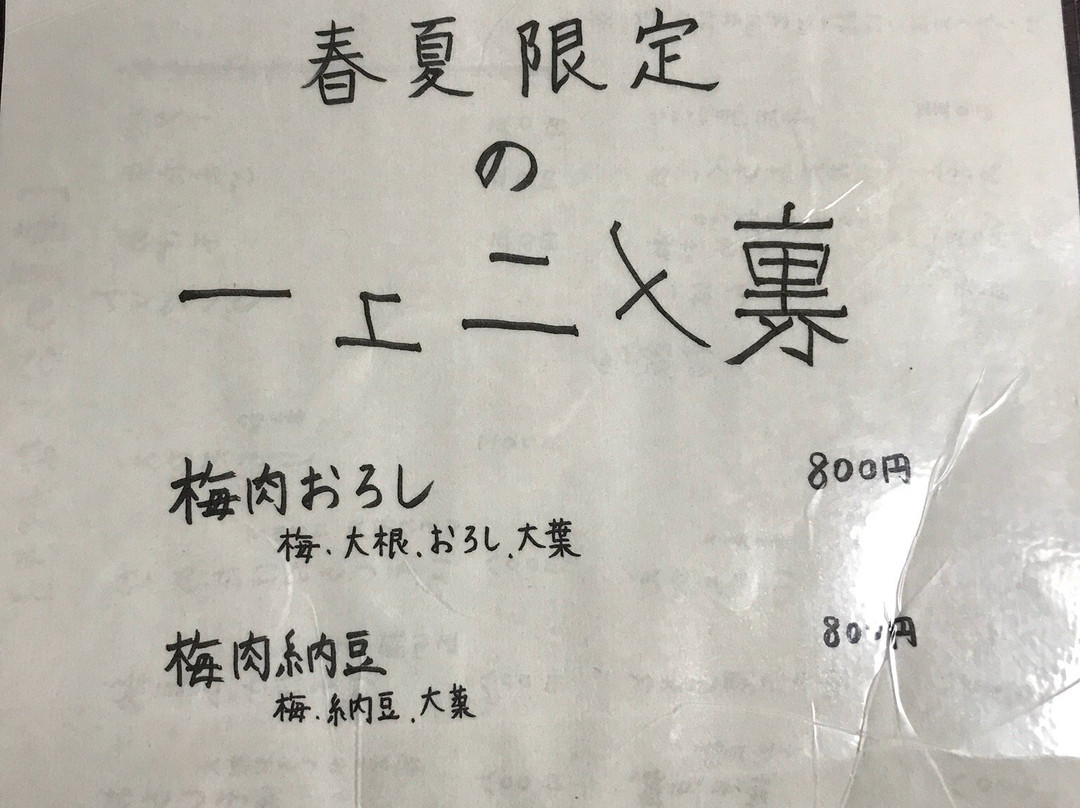 春夏限定
の
裏メニュー
梅肉おろし 800円
梅、大根、おろし、大葉
梅肉納豆 800円
梅、納豆、大葉